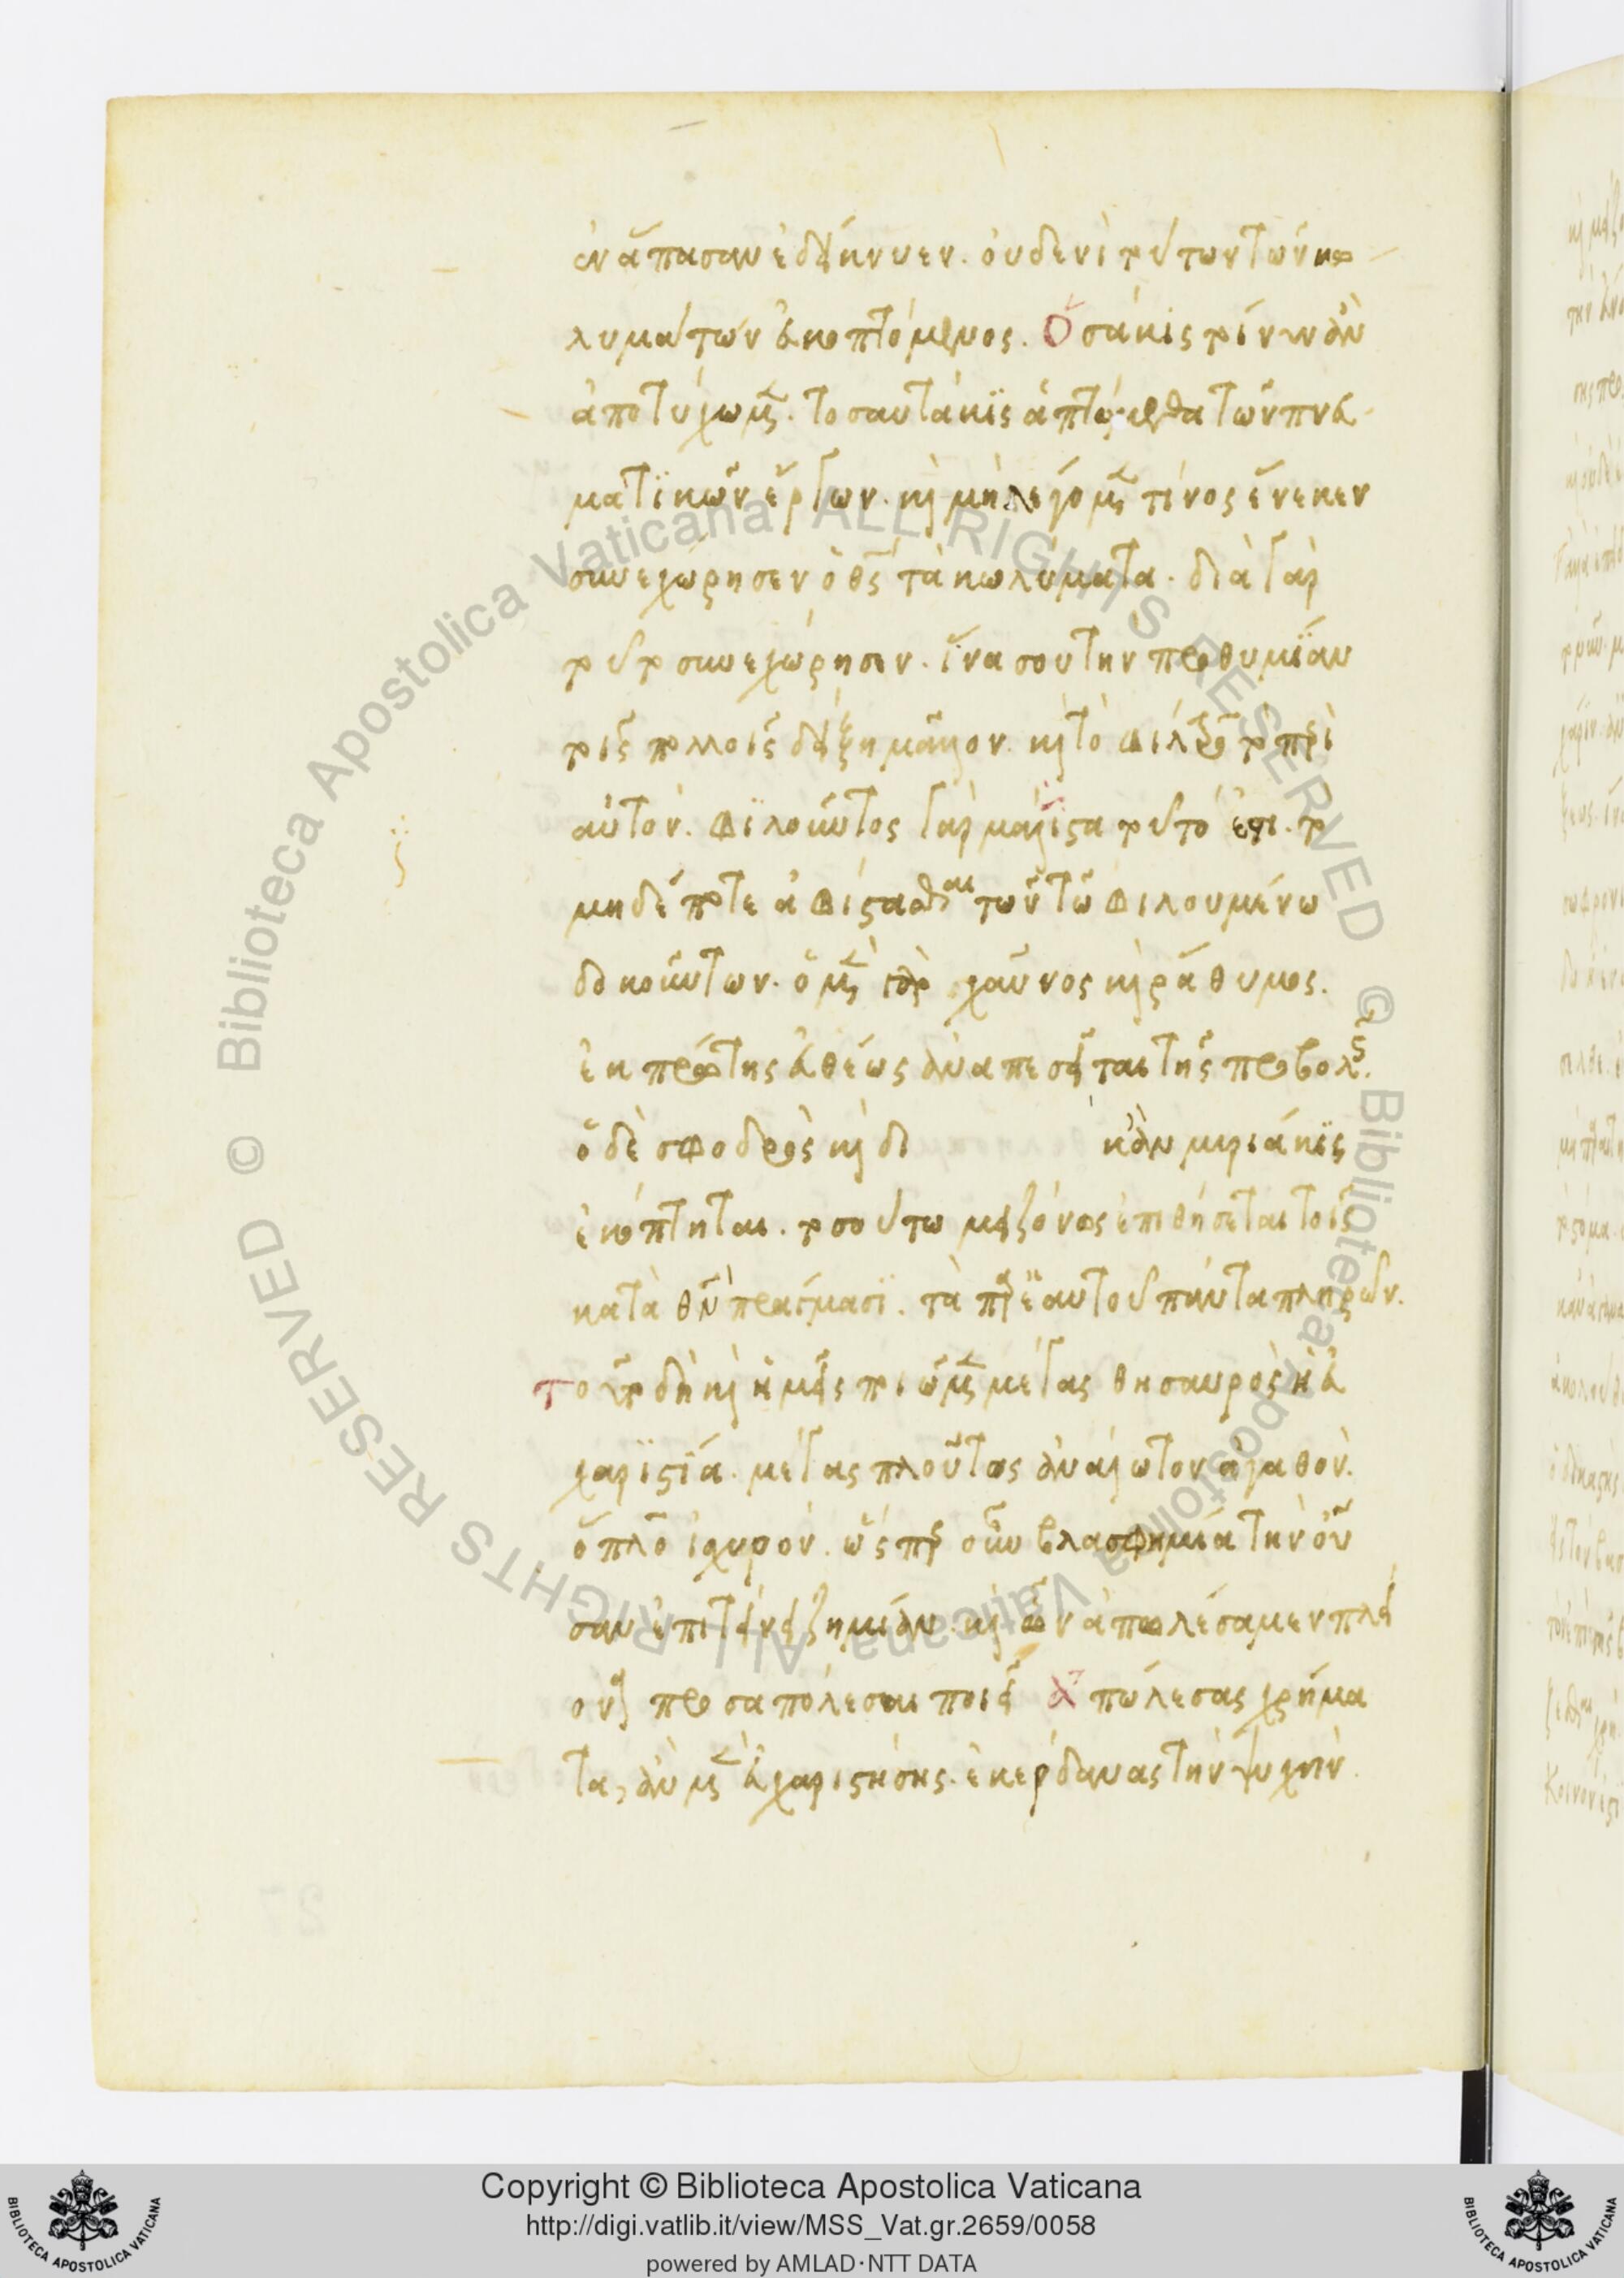 ἐν ἅπασαν ἐδείκνυεν. οὐδενὶ τούτων τῶν κω
λυμάτων ἐκκοπτόμενος. Ὁσάκις τοίνυν ἂν
ἀποτύχωμεν. τοσαυτάκις ἁπτώμεθα τῶν πνευ
ματικῶν ἔργων. καὶ μὴ λέγομεν τίνος ἕνεκεν
συνεχώρησεν ὁ θς τὰ κωλύματα. διὰ γὰρ
τοῦτο συνεχώρησεν. ἵνα σου τὴν προθυμίαν
τοῖς πολλοῖς δείξῃ μᾶλλον. καὶ τὸ φίλτρον τὸ περὶ
αὐτόν. φιλοῦντος γὰρ μάλιστα τοῦτό ἐστι. τὸ
μηδέποτε ἀφίστασθαι τῶν τῶ φιλουμένω
δοκούντων. ὁ μὲν γὰρ χαῦνος καὶ ράθυμος.
ἐκ πρώτης εὐθέως ἀναπεσεῖται τῆς προσβολῆς.
ὁ δὲ σφοδρὸς καὶ δι κἂν μυριάκις
ἐκκόπτηται. τοσούτω μειζόνως ἐπιθήσεται τοῖς
κατὰ θν πράγμασι. τὰ παρ ἑαυτοῦ πάντα πληρῶν.
τοῦτο δὴ καὶ ἡμεῖς ποιῶμεν μέγας θησαυρὸς ἡ εὐ
χαριστία. μέγας πλοῦτος ἀνάλωτον ἀγαθόν.
ὅπλον ἰσχυρόν. ὥσπερ οὖν βλασφημία τὴν οὖ
σαν ἐπιτείνει ζημίαν. καὶ ὧν ἀπωλέσαμεν πλεί
ονα προσαπολέσαι ποιεῖ ἀπώλεσας χρήμα
τα, ἂν μὲν εὐχαριστήσης. ἐκέρδανας τὴν ψυχήν.
Copyright © Biblioteca Apostolica Vaticana
http://digi.vatlib.it/view/MSS_Vat.gr.2659/0058
powered by AMLAD·NTT DATA